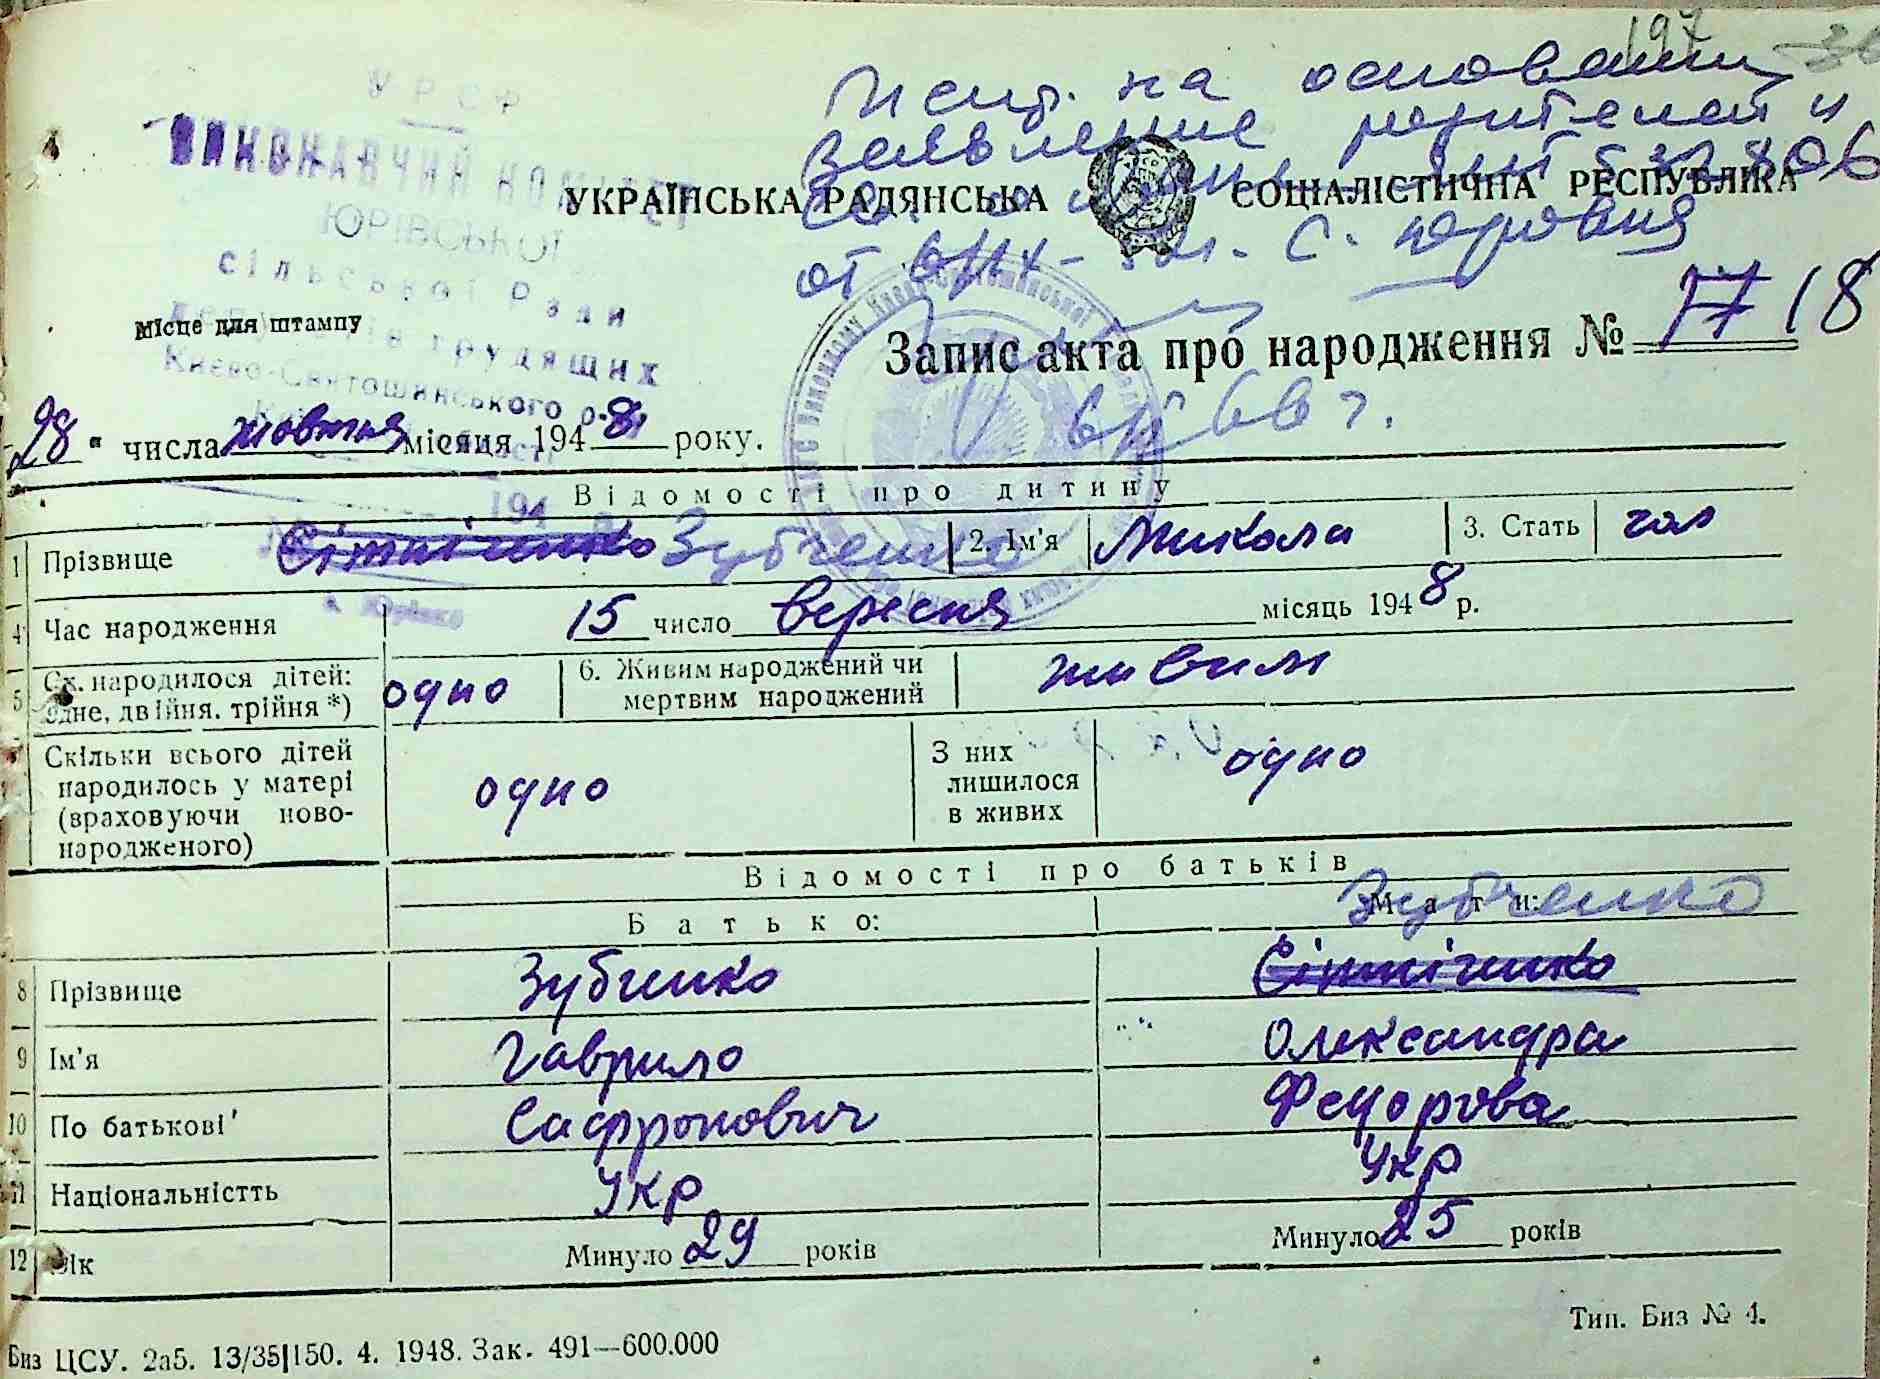 197
Испр. на основании
заявление родителей и
УРСР
ВИКОНАВЧИЙ КОМІТЕТ
УКРАЇНСЬКА РАДЯНСЬКА СОЦІАЛІСТИЧНА РЕСПУБЛІКА
ЮРІВСЬКОЇ
сільської Ради
от
депутатів трудящих
Місце для штампу
Києво-Святошинського р-ну
Запис акта про народження № 17 18
28 " числа жовтня місяця 1948 року.
Відомості про дитину
194
1 Прізвище Сітніченко Зубченко 2. Ім'я Микола 3. Стать чол
с. Юрівка
4 Час народження 15 число вересня місяць 1948 р.
5 Ск. народилося дітей: одне, двійня, трійня *) одно 6. Живим народжений чи мертвим народжений живим
Скільки всього дітей
народилось у матері
(враховуючи ново-
народженого)
одно
З них
лишилося
в живих
одно
Відомості про батьків
Батько: Мати: Зубченко
8 Прізвище Зубченко Сітніченко
9 Ім'я Гаврило Олександра
10 По батькові Сафронович Федорова
11 Національністть Укр Укр
12 Вік Минуло 29 років Минуло 25 років
Тип. Биз № 4.
Биз ЦСУ. 2а5. 13/35|150. 4. 1948. Зак. 491—600.000